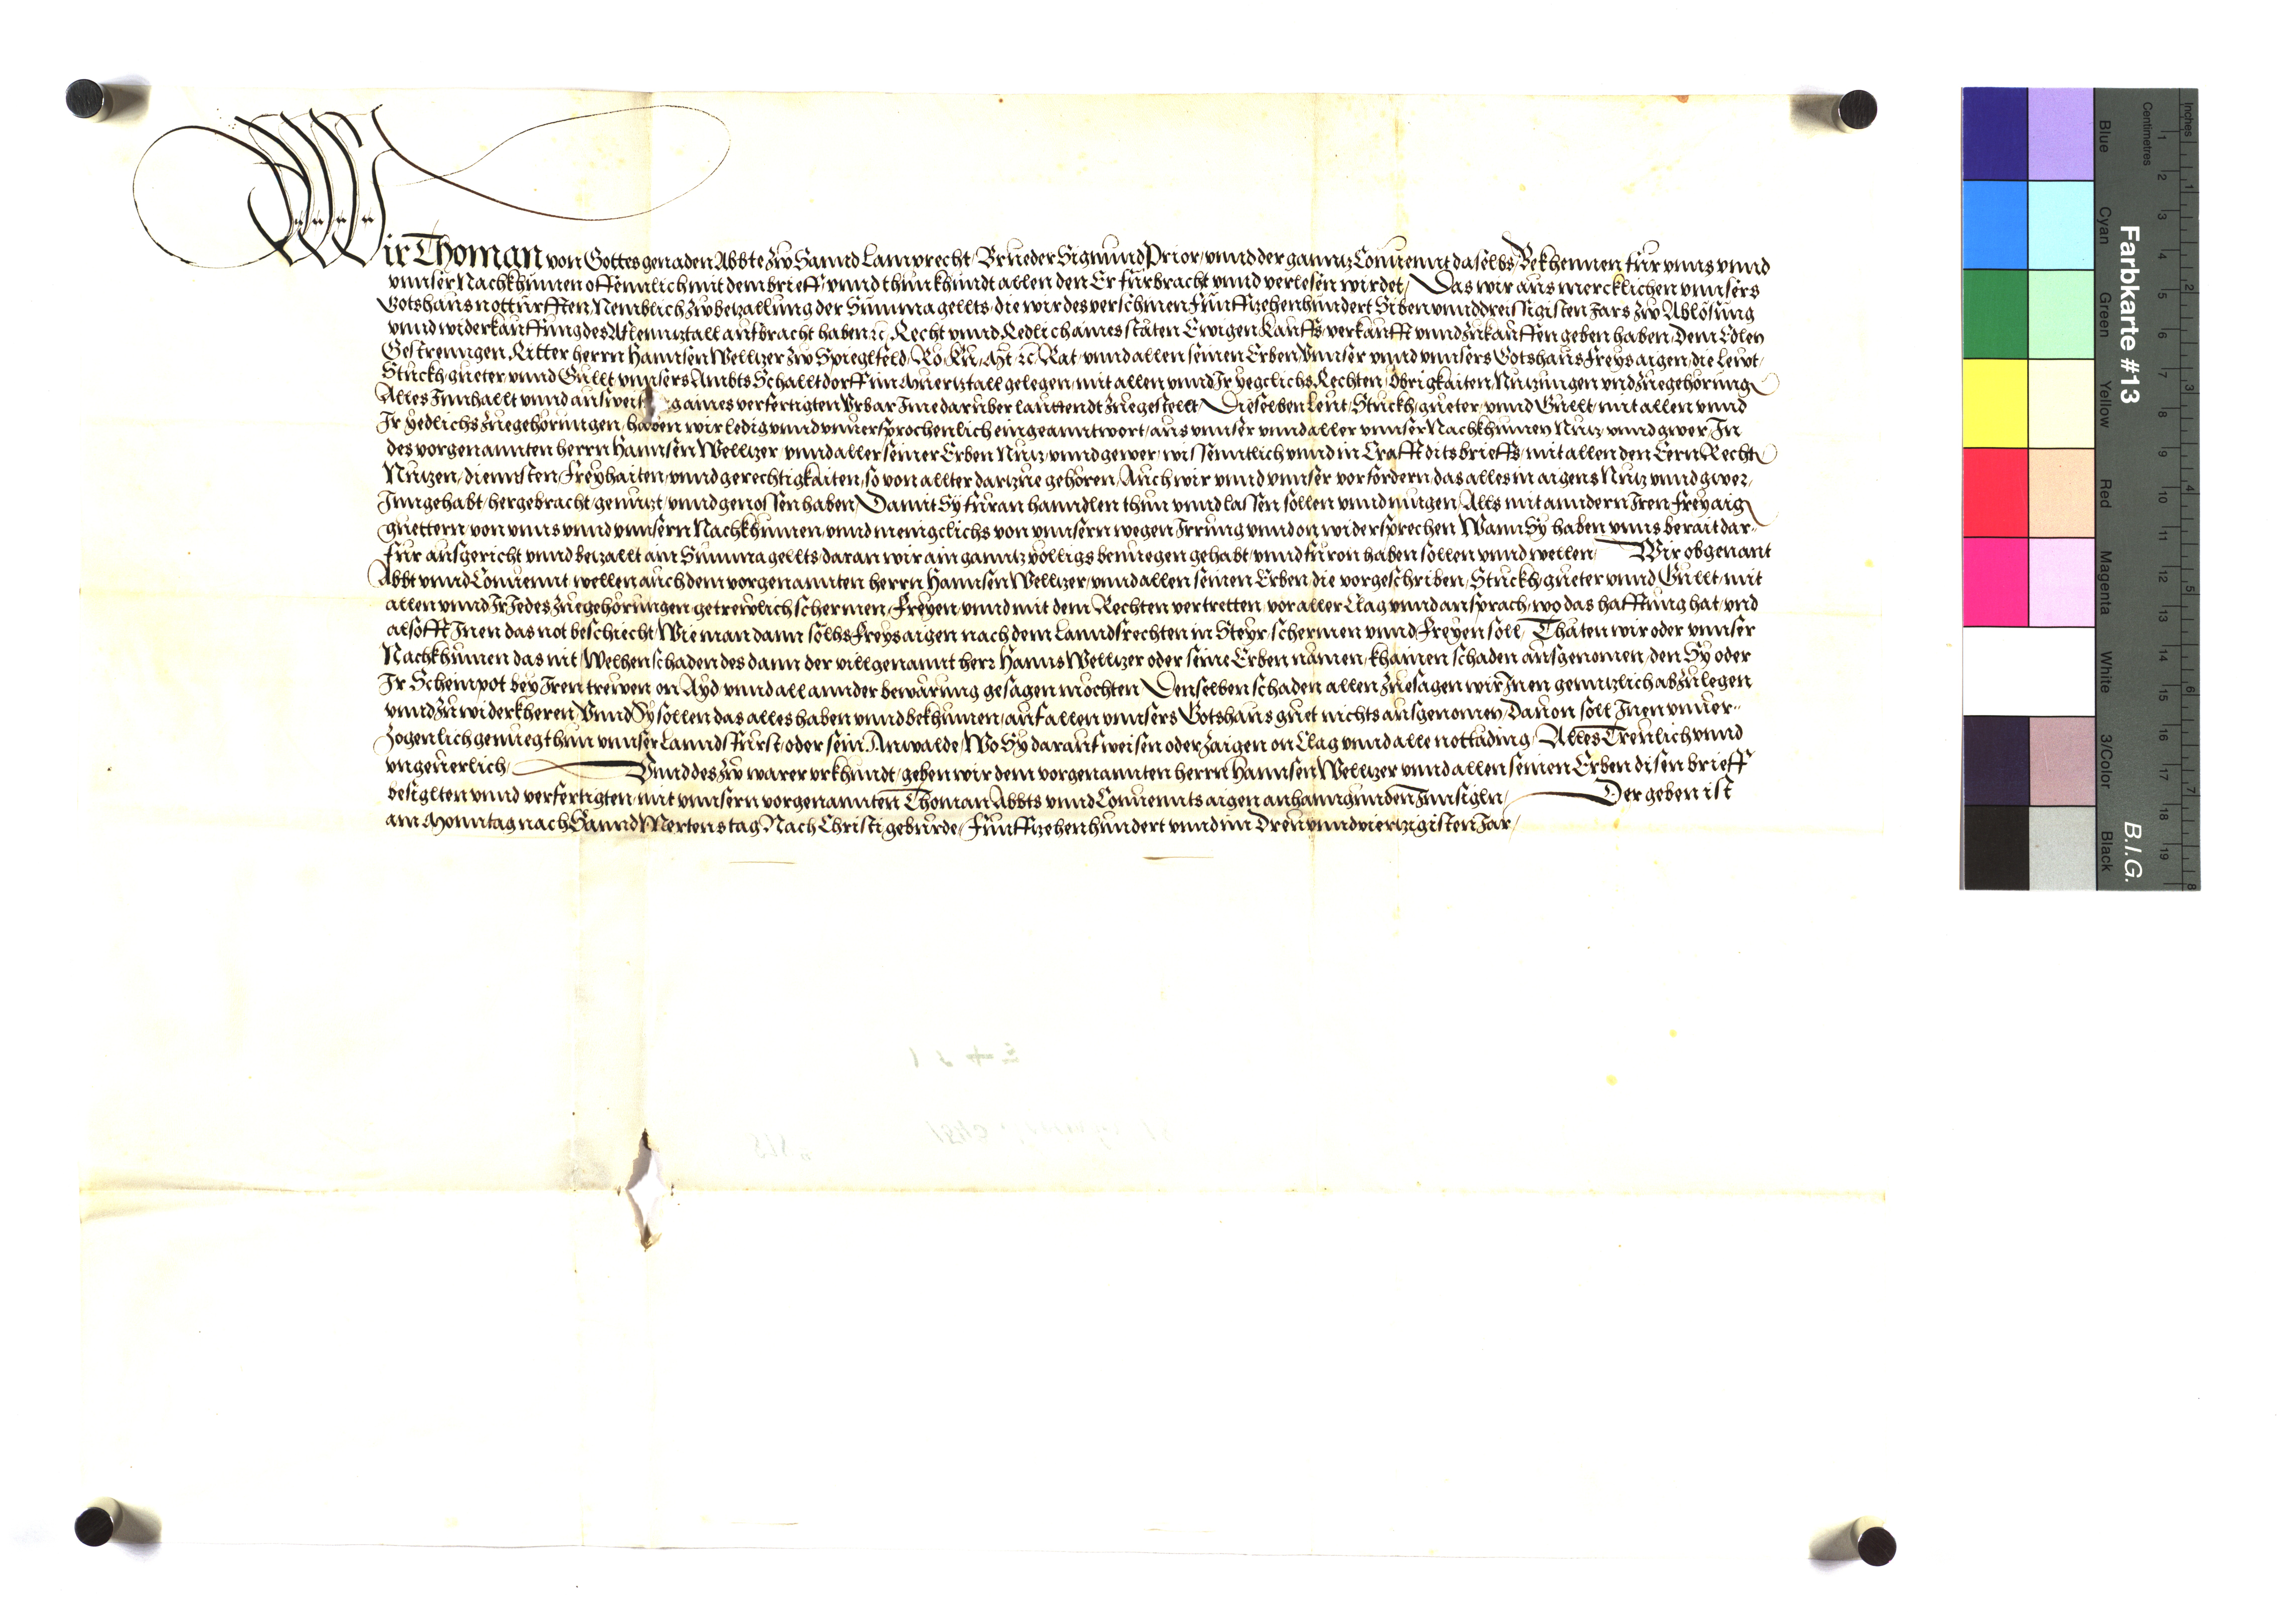 Wir Thoman von Gottes genaden Abbte zw Sannd Lamprecht / Brueder Sigmund Prior / vnnd der ganntz Conuennt daselbs / Bekhennen für vnns vnnd
vnnser Nachkhumen offennlich mit dem brieff / vnnd thun khundt allen den Er fürbracht vnnd verlesen wirdet / Das wir aus mercklichen vnnsers
Gotshaus notturfften / Nemblich zw bezallung der Summa gellts / die wir des verschinen Funffzehenhundert Siben vnnddreissigisten Jars zw Ablösung
vnnd widerkauffung des Aflennztall aufbracht haben ꝛc. Recht vnnd Redlich aines stäten Ewigen Kauffs verkaufft vnnd zukauffen geben haben / Dem Edlen
Gestrenngen Ritter herrn Hannsen Wellzer zw Spieglfeld / Rö. Kü. Mt. ꝛc. Rat / vnnd allen seinen Erben / Vnnser vnnd vnnsers Gotshaus freys aigen / die Lewt /
Stuckh / gueter vnnd Gullt vnnsers Ambts Schalltdorff im Muertztall gelegen / mit allen vnnd Jr yegclichs Rechten / Obrigkaiten / Nutzungen vnd zuegehörung
Alles Innhallt vnnd ausweis aines verfertigten Vrbar Ime darüber lauttendt zuegestellt / Dieselben Leut / Stuckh / gueter / vnnd Gullt / mit allen vnnd
Jr yedlichs zuegehörungen / haben wir ledig vnnd vnuersprochenlich eingeanntwort / aus vnnser vnnd aller vnnser Nachkhumen Nutz vnnd gwer / In
des vorgenannten herrn Hannsen Wellzer / vnnd aller seiner Erben Nutz / vnnd gewer / wissenntlich vnnd in Crafft dits brieffs / mit allen den Eern Recht
Nutzen / diennsten / freyhaiten / vnnd gerechtigkaiten / so von allter dartzue gehören / Auch wir vnnd vnnser vorfordern / das alles in aigens Nutz vnnd gwer /
Inngehabt / hergebracht / genutzt / vnnd genossen haben / Damit Sy füran hanndlen thun vnnd lassen sollen vnnd mugen / Alls mit anndern Iren freyaig
guettern / von vnns vnnd vnnsern Nachkhumen / vnnd menigclichs von vnnsern wegen Irrung vnnd on widersprechen Wann Sy haben vnns berait dar-
für ausgericht vnnd betzallt ain Summa gellts / daran wir ain ganntz völligs benuegen gehabt / vnnd füron haben sollen vnnd wellen / Wir obgenant
Abbt vnnd Conuennt / wellen auch dem vorgenannten herrn Hannsen Wellzer / vnnd allen seinen Erben / die vorgeschriben / Stuckh / gueter vnnd Gullt / mit
allen vnnd Jr Jedes zuegehörungen getrewlich schermen / Freyen / vnnd mit dem Rechten vertretten / vor aller Clag vnnd ansprach / wo das hafftung hat / vnd
alsofft Inen das not beschiecht / Wie man dann sölhs Freys aigen nach dem Lanndsrechten in Steyr / schermen vnnd Freyen soll / Thäten wir oder vnnser
Nachkhumen das nit / Welhen schaden des dann der villgenannt herr Hanns Wellzer oder seine Erben nämen / khainen schaden ausgenomen / den Sy oder
Ir Scheinpot bey Iren trewen on Ayd vnnd all annder bewärung gesagen möchten Denselben schaden allen zuesagen wir Inen genntzlich abzulegen
vnnd zu widerkheren / Vnnd Sy sollen das alles haben vnnd bekhumen / auf allen vnnsers Gotshaus guet nichts ausgenomen / Dauon soll Inen vnuer-
zogenlich genueg thun vnnser Lanndsfürst / oder sein Anwalde / Wo Sy darauf weisen oder zaigen on Clag vnnd alle nottäding / Alles Treulich vnnd
vngeuerlich / Vnnd des zw warer vrkhundt / geben wir dem vorgenannten herrn Hannsen Wellzer vnnd allen seinen Erben disen brieff
besiglten vnnd verfertigten / mit vnnsern vorgenannten Thoman Abbts vnnd Conuennts aigen anhanngunden Innsigln / Der geben ist
am Monntag nach Sannd Mertenstag / Nach Christi geburde / Funffzehenhundert vnnd im Dreuvnndviertzigisten Jar /
Farbkarte #13
B.I.G.
Inches
Centimetres
Blue
Cyan
Green
Yellow
Red
Magenta
White
3/Color
Black